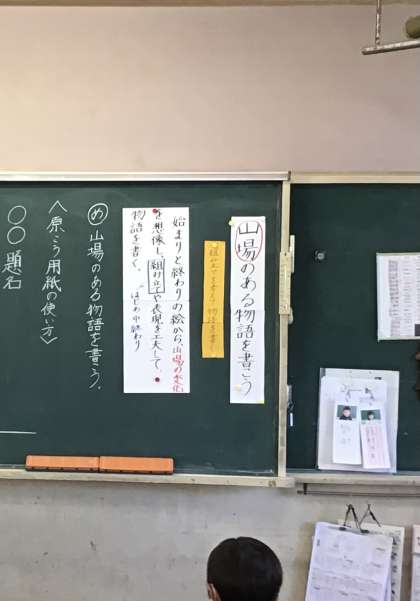 山場のある物語を書こう
組み立てを考えて物語を書く
始まりと終わりの絵から、山場の変化
を想像し、組み立てや表現を工夫して
物語を書く。
はじめ中終わり
め 山場のある物語を書こう。
〈原こう用紙の使い方〉
○○題名